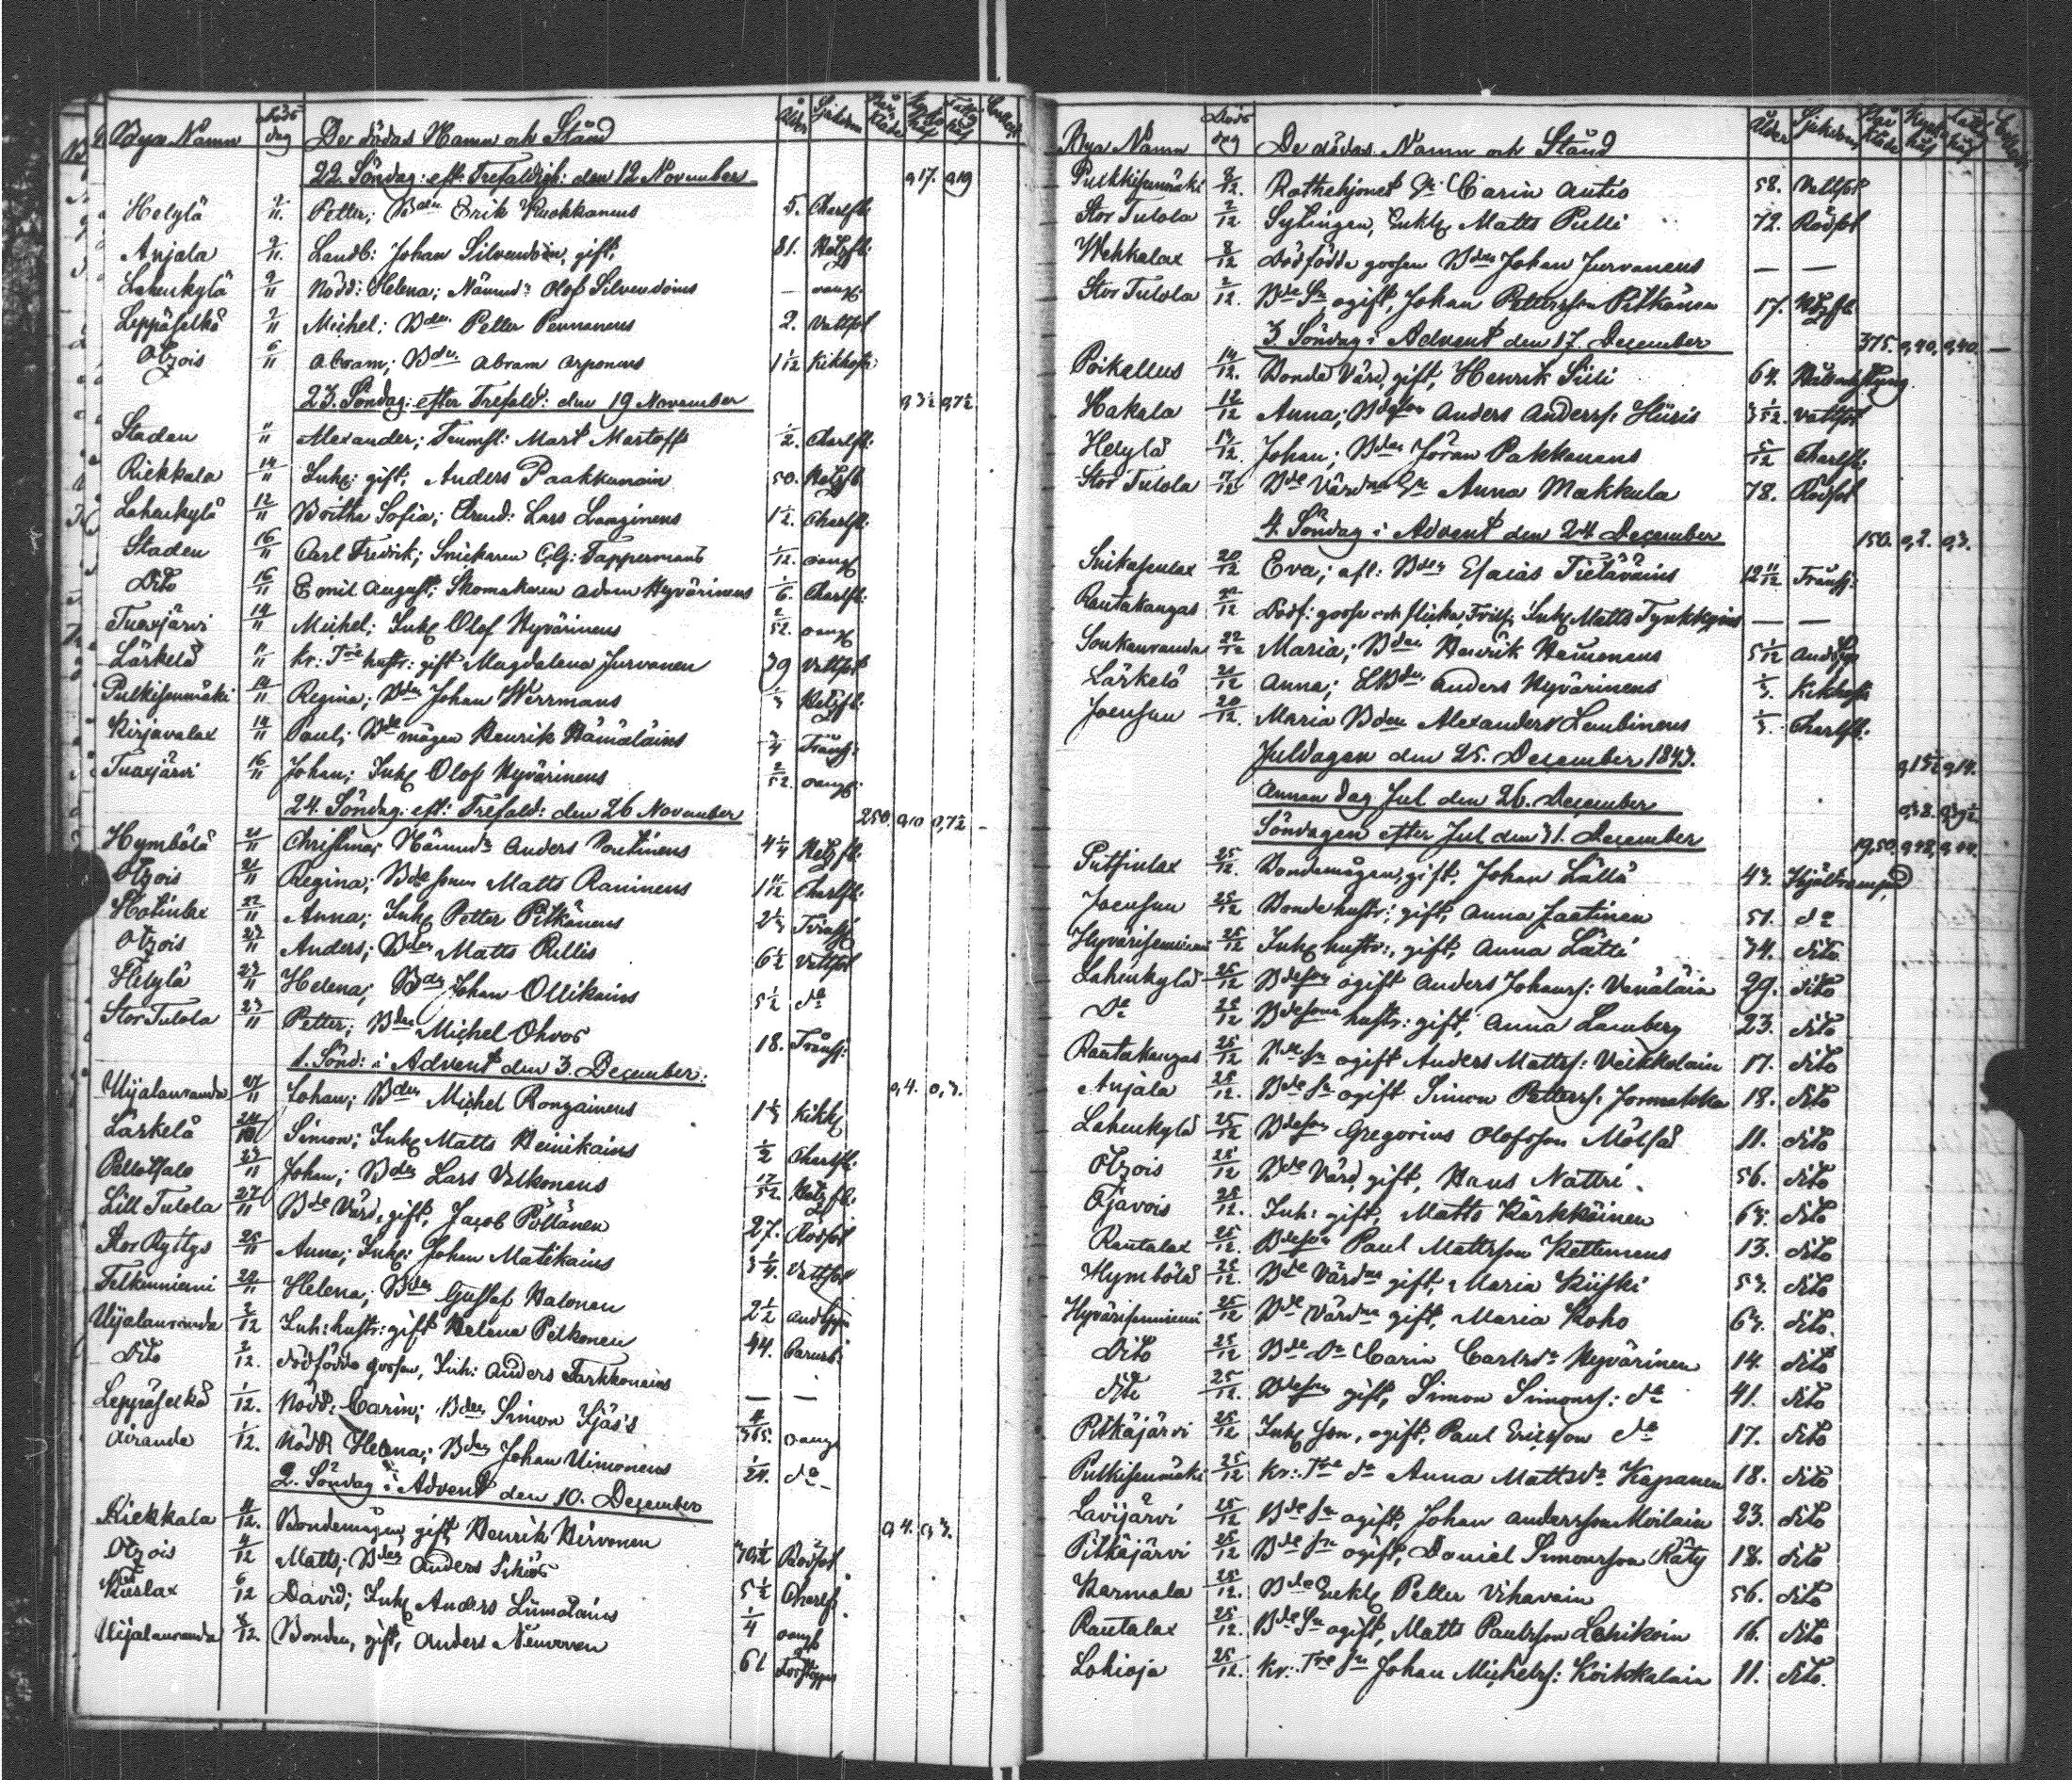 Bya Namn Döds dag De dödas Namn och Stånd Ålder Sjukdom
22. Söndag: eft: Trefaldigh: den 12 November 9,17. 9,19
Helylä 7/11. Petter; Bden Erik Kuokkanens 5. Charlfb:
Anjala 9/11. Landb: Johan Silvendoin, gift, 81. Hetzfb:
Lahenkylä 9/11 Nödd: Helena; Nämnd: Olof Silvendoins — oangf:
Leppäselkä 7/11 Michel; Bden Petter Pennanens 2. Vattsot
Otzois 6/11 Abram; Bden Abram Arponens 1 1/12 Kikhosta
23. Söndag: efter Trefald: den 19 November 9,3½ 9,7½
Staden 11/11 Alexander; Trumsl: Mart Martoffs ½. Charlfb:
Riekkala 14/11 Inhs: gift, Anders Paakkunain 50. Hetzfb.
Lahenkylä 12/11 Britha Sofia; Arend: Lars Langinens 1½. Charlfb:
Staden 16/11 Carl Fredrik; Snickaren C:G: Tappermans 1/12. oangf
Dito 16/11 Emil August; Skomakaren Adam Hyvärinens 1/6. Charlfb:
Tuoxjärvi 14/11 Michel; Inhs Olof Hyvärinens 2/52. oangf
Lärkelä 11/11 Kr: Tre hustr: gift Magdalena Jurvanen 39 Vattsot
Pulkisenmäki 14/11 Regina; Bden Johan Herrmans 1/3 Hetzfb:
Kirjavalax 14/11 Paul; Bde mågen Henrik Hämäläins 3/4 Trånss:
Tuoxjärvi 16/11 Johan; Inhs Olof Hyvärinens 2/52. oangf:
24. Söndag: eft: Trefald: den 26 November 250. 9,10 0,7½ –
Hymbölä 21/11 Christina; Nämnd: Anders Poutinens 4¼ Hetzfb:
Otzois 21/11 Regina; Bde sonen Matts Raninens 1 11/12 Charlfb:
Hotinlax 22/11 Anna; Inhs Petter Pitkänens 2⅓ Trånss
Otzois 23/11 Anders; Bden Matts Pullis 6½ Vattsot
Helylä 23/11 Helena; Bden Johan Ollikains 5½ do
Stor Tulola 23/11 Petter; Bden Michel Ohvos 18. Trånss:
1. Sönd: i Advent den 3. December: 9,4. 0,3.
Uijalanranda 27/11 Johan; Bden Michel Rongainens 1⅓ Kikh
Lärkelä 24/11 Simon; Inhs Matts Heinikains ½ Charlfb:
Pellotsalo 23/11 Johan; Bden Lars Valkonens 17/52. Hetzfb:
Lill Tulola 27/11 Bde Värd, gift, Jacob Pöllänen 27. Rödsot
Stor Ryttys 25/11 Anna; Inhs: Johan Matikains 3¼. Vattsot
Telkinniemi 29/11 Helena; Bden Gustaf Halonen 2½ Andtäppa
Uijalanranda 2/12 Inh: hustr: gift Helena Pitkonen 44. Barnsb:
Dito 2/12. dödfödde gossen, Inh: Anders Tarkkonains — —
Leppäselkä 1/12. Nödd: Carin; Bden Simon Ijäs's 4/365. oangf
Airanda 1/12. Nödd: Helena; Bden Johan Uimonens 1/24. do
2. Söndag i Advent den 10. December 9,4. 9,3.
Riekkala 4/12. Bondemågen, gift, Henrik Hirvonen 70½ Rödsot
Otzois 4/12 Matts; Bden Anders Sihvos 5½ Charlf.
Kuslax 6/12 David; Inhs Anders Liimatains ¼ oangf
Uijalanranda 8/12. Bonden, gift, Anders Neuvonen 61 Forstoppn
Bya Namn Döds dag De dödas Namn och Stånd Ålder Sjukdom
Pulkkisenmäki 8/12. Rothehjonet Ea Carin Autio 58. Vattsot
Stor Tulola 2/12 Sytingen, Enkl: Matts Pulli 72. Rödsot
Wehkalax 8/12 Dödfödda gossen Bden Johan Jurvanens — —
Stor Tulola 2/12. Bde Sn ogift, Johan Pettersson Pitkänen 17. Hetzfb
3. Söndag i Advent den 17. December 375. 9,40. 9,40. —
Poikellus 14/12. Bonde Värd, gift, Henrik Siili 64. Håll och styng
Hakala 12/12 Anna; Bdeson Anders Anderss: Hiiris 3 5/52. Vattsot
Helylä 13/12. Johan; Bden Jöran Pakkanens 5/12 Charlfb:
Stor Tulola 17/12 Bde Värdna Ea Anna Makkula 78. Rödsot
4. Söndag i Advent den 24. December 150. 9,2. 9,3.
Suikasenlax 20/12 Eva; afl: Bden Esaias Tietäväins 12 11/12 Trånss:
Rautakangas 22/12 Dödf: gosse och flicka, Tvill: Inhs Matts Tynkkynens — —
Soukanranda 22/12 Maria; Bden Henrik Heimonens 5 1/12 Andtäpp
Lärkelä 21/12 Anna; LBden Anders Hyvärinens 1/3. Kikhosta
Joensuu 20/12. Maria Bden Alexanders Lembinens 1/3. Charlfb:
Juldagen den 25. December 1843. 9,15½ 9,14.
Annan dag Jul den 26. December 9,38. 9,39½
Söndagen efter Jul den 31. December 19,50. 9,48. 9,44.
Putsinlax 25/12. Bondemågen, gift, Johan Lällä 43. Ihjältrampad
Joensuu 25/12 Bonde hustr:, gift, Anna Jaatinen 51. do
Hyvärisenniemi 25/12 Inhs hustr:, gift, Anna Lätti 34. dito
Lahenkylä 25/12 Bdeson ogift Anders Johanss: Venäläin 29. dito
Do 25/12 Bdesons hustr: gift, Anna Lamberg 23. dito
Rautakangas 25/12 Bde Sn ogift Anders Mattss: Veikkolain 17. dito
Anjala 25/12. Bde Sn ogift Simon Petterss: Jormakka 18. dito
Lahenkylä 25/12 Bdeson Gregorius Olofsson Mölsä 11. dito
Otzois 25/12 Bde Värd, gift, Hans Nattri 56. dito
Ojavois 25/12. Inh: gift, Matts Kärkkäinen 63. dito
Rautalax 25/12. Bdeson Paul Mattsson Kettunens 13. dito
Hymbölä 25/12. Bde Värdna gift, Maria Kiiski 53. dito
Hyvärisenniemi 25/12 Bde Värdna gift, Maria Koho 63. dito.
Dito 25/12 Bde Dr Carin Carlsdr Hyvärinen 14. dito
dito 25/12. Bdeson gift, Simon Simonss: do 41. dito
Pitkäjärvi 25/12 Inhs son, ogift, Paul Ericsson do 17. dito
Pulkisenmäki 25/12 Kr: Tre dr Anna Mattsdr Kapanen 18. dito
Lavijärvi 25/12 Bde Sn ogift, Johan Andersson Moilain 23. dito
Pitkäjärvi 25/12 Bde Sn ogift, Daniel Simonsson Räty 18. dito
Karmala 25/12. Bde Enkl: Petter Vihavain 56. dito
Rautalax 25/12. Bde Sn ogift, Matts Paulsson Lehikoin 16. dito
Lohioja 25/12. Kr: Tre Sn Johan Michelss: Koikkalain 11. dito.